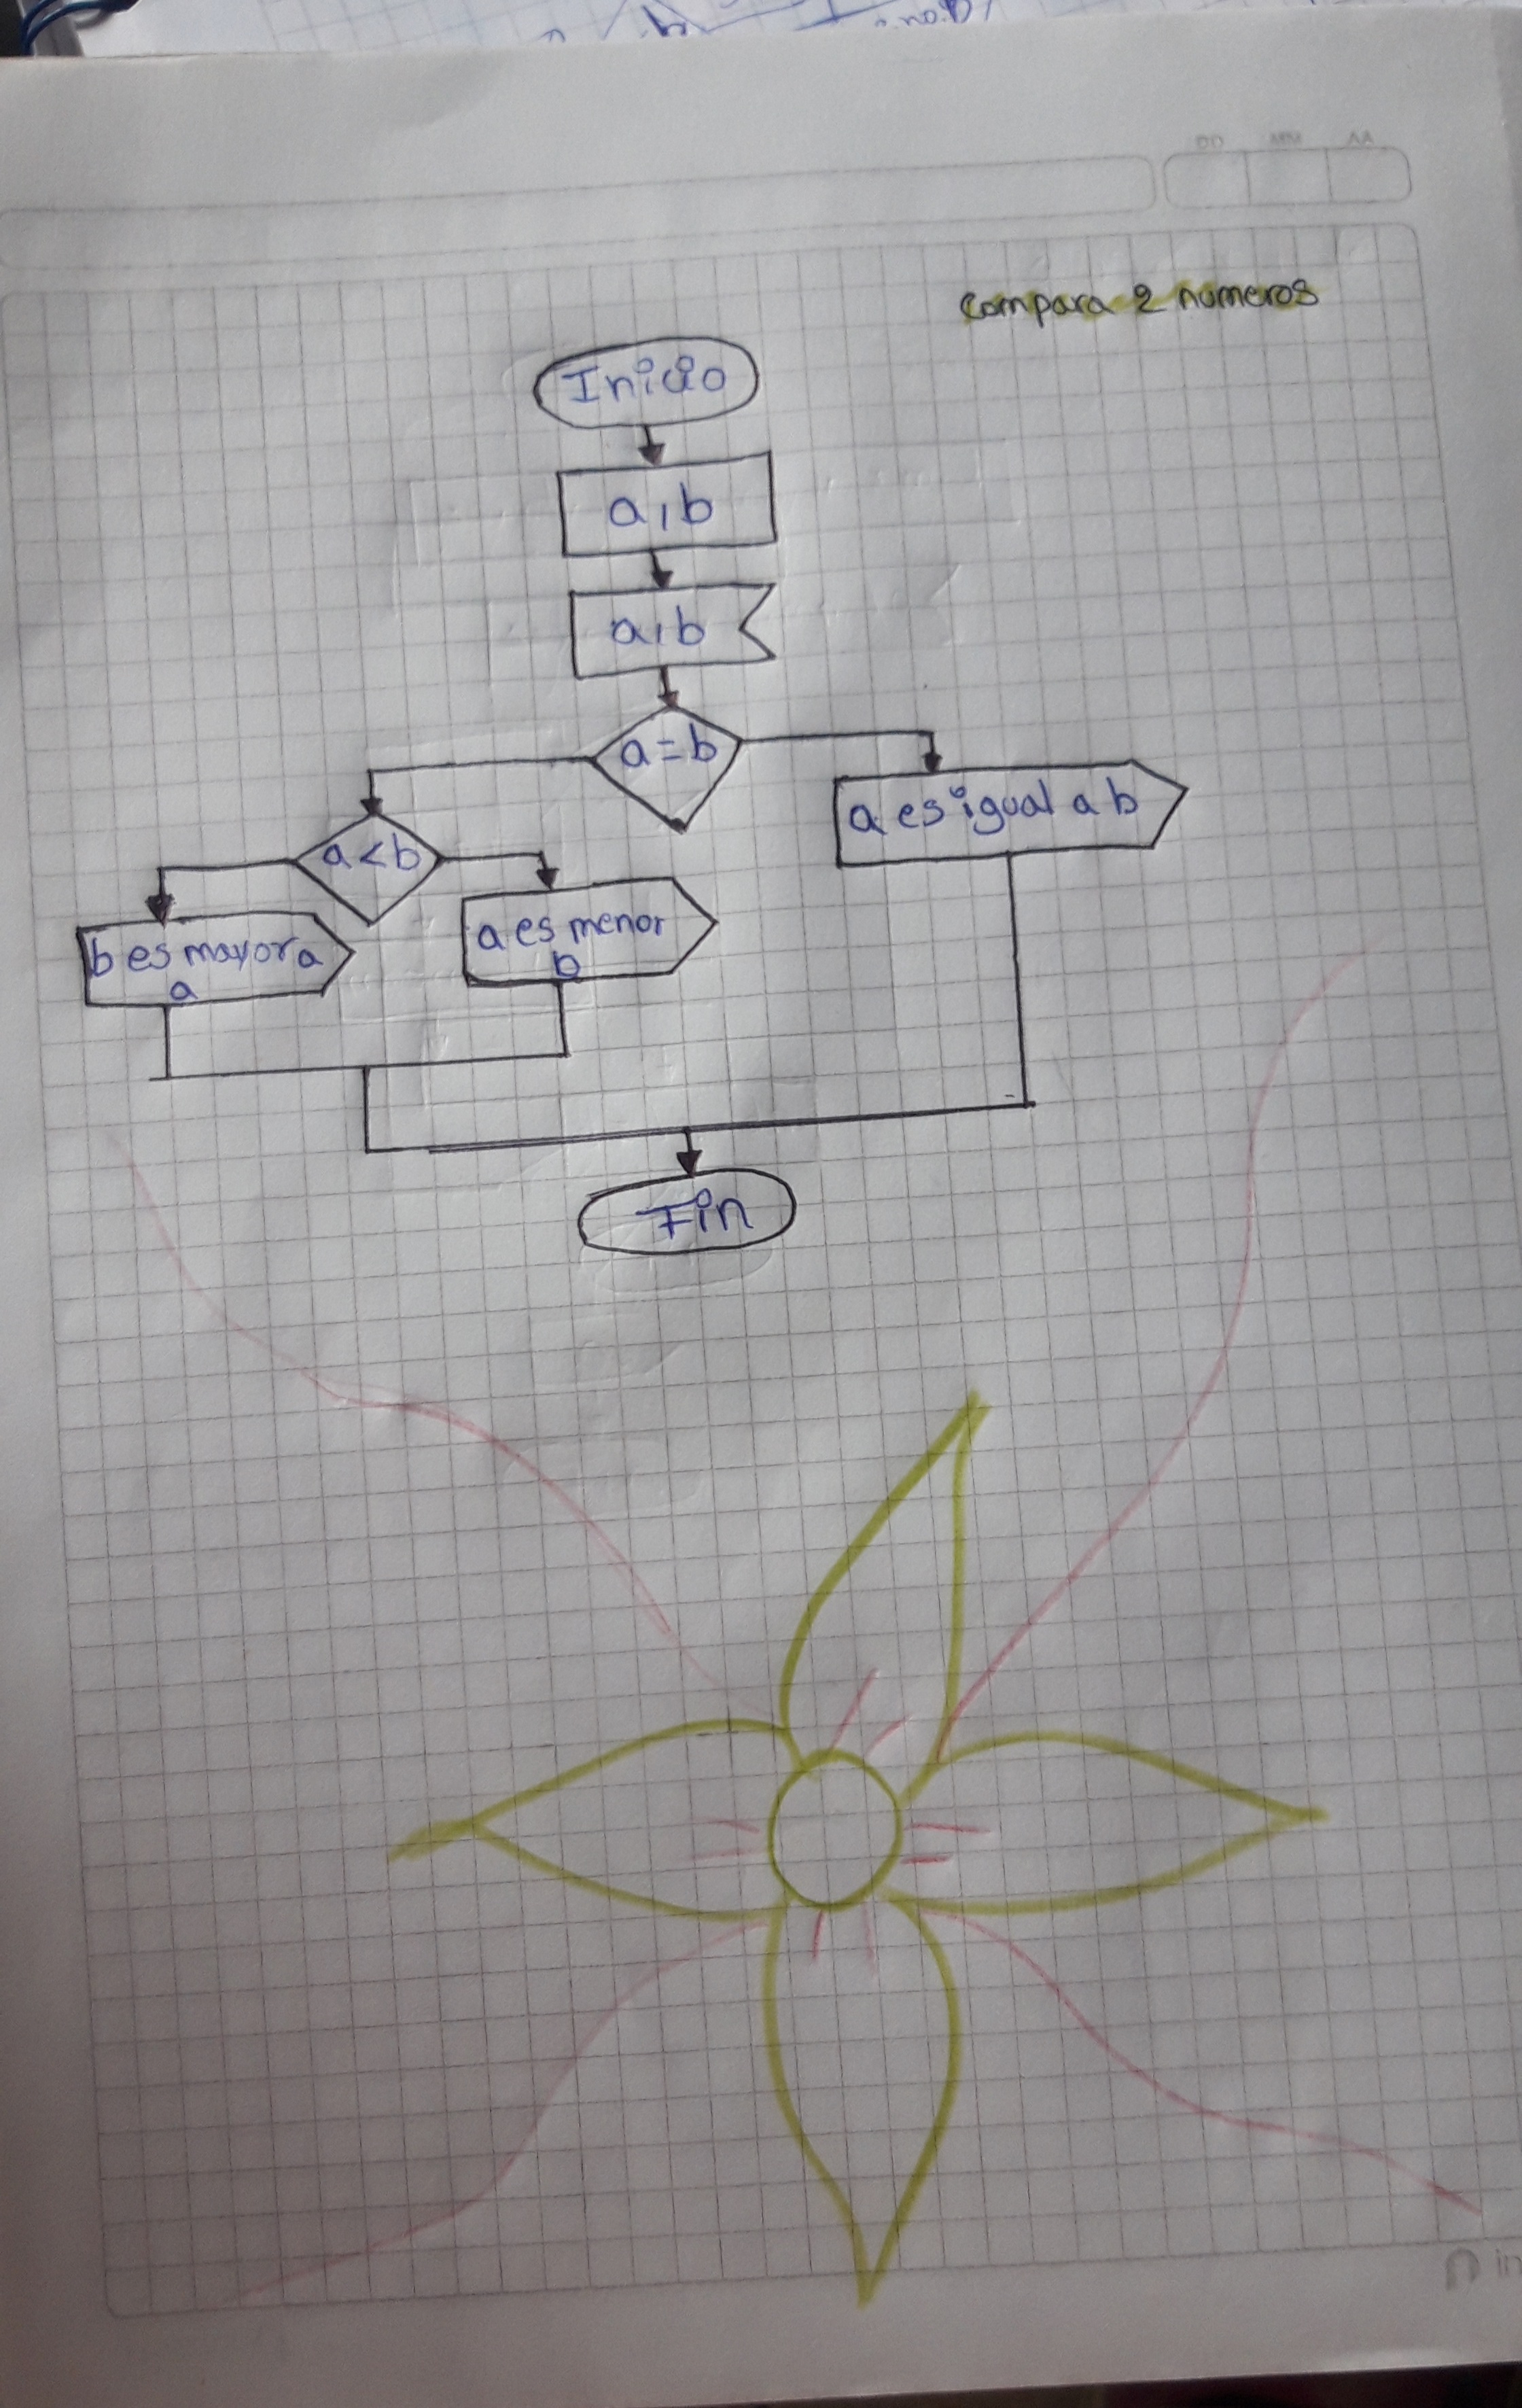 DD MM AA
compara 2 numeros
Inicio
a, b
a, b
a = b
a es igual a b
a < b
b es mayor a
a
a es menor
b
Fin